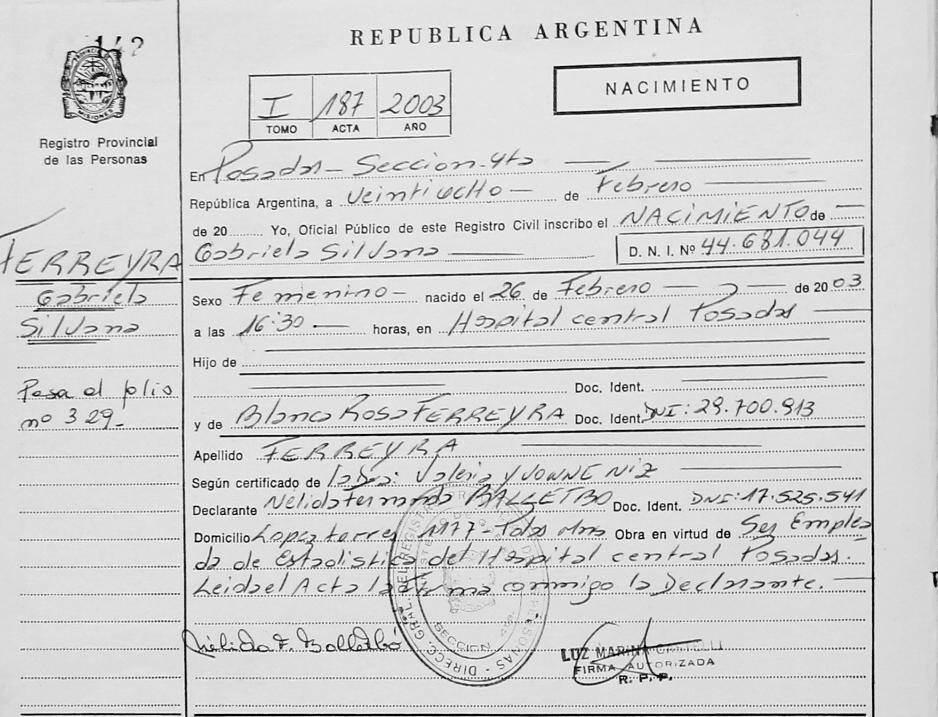 142
REPUBLICA ARGENTINA
NACIMIENTO
I 187 2003
TOMO ACTA AÑO
MISIONES
Registro Provincial
de las Personas
En Posadas - Seccion 4ta
República Argentina, a veintiocho de Febrero
de 20 Yo, Oficial Público de este Registro Civil inscribo el NACIMIENTO de
Gabriela Silvana D. N. I. Nº 44.681.044
FERREYRA
Gabriela
Silvana
Sexo Femenino nacido el 26 de Febrero de 2003
a las 16:30 horas, en Hospital central Posadas
Hijo de
Doc. Ident.
Pasa al folio
nº 329
y de Blanca Rosa FERREYRA Doc. Ident. DNI: 29.700.913
Apellido FERREYRA
Según certificado de Valeria YVONNE Niz
Declarante Nelida Fernanda BALLETBO Doc. Ident. DNI: 17.525.541
Domicilio Lopez torres 1977 - Obra en virtud de Ser Emplea
da de Estadistica del Hospital central Posadas.
Leida el Acta la firma conmigo la Declarante.
Nélida F. Balletbó
DIRECC. GRAL. DEL REGISTRO PERSONAS
SECCION 4ta
LUZ MARINA
FIRMA AUTORIZADA
R. P. P.